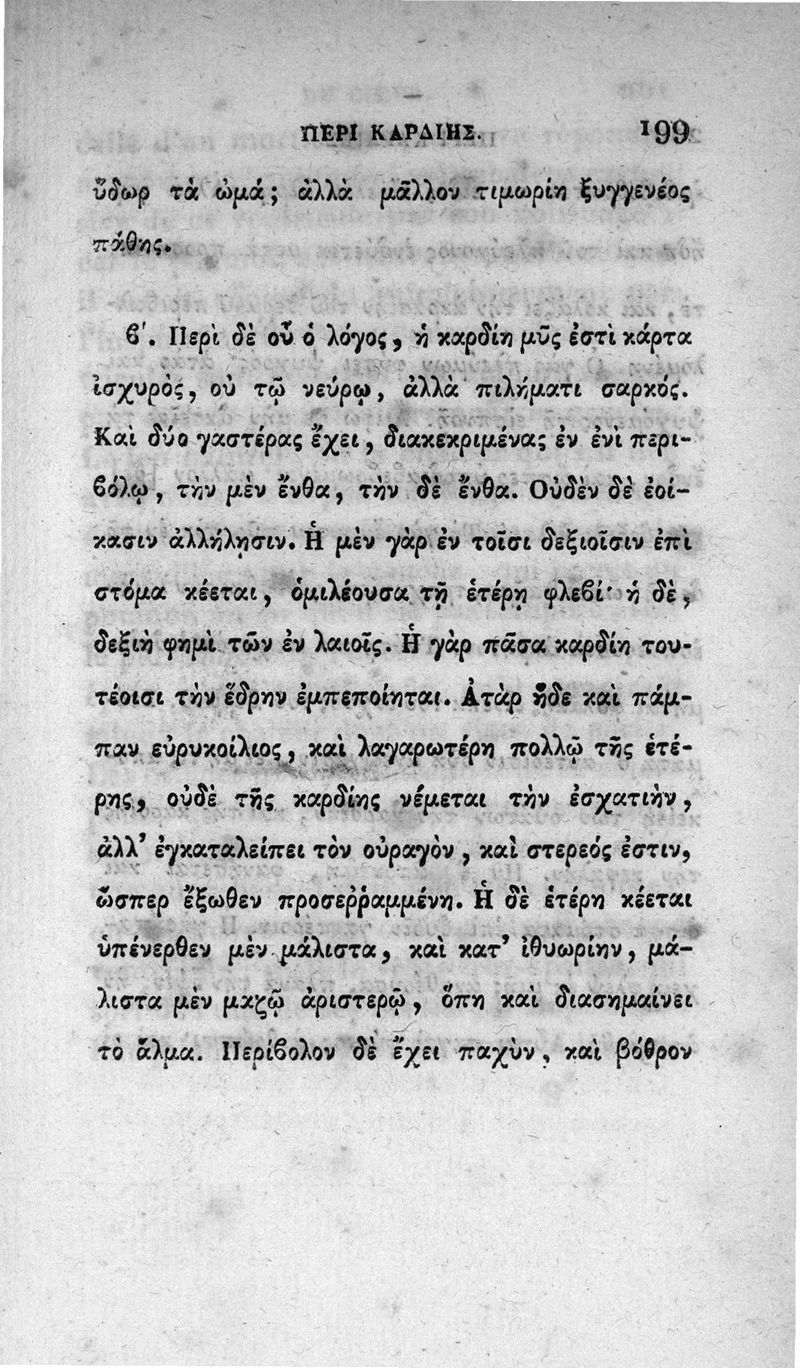 ΠΕΡΙ ΚΑΡΔΙΗΣ. 199
ὕδωρ τὰ ὠμά; ἀλλὰ μᾶλλον τιμωρίη ξυγγενέος
πάθης.
ϐ'. Περὶ δὲ οὗ ὁ λόγος, ἡ καρδίη μῦς ἐστὶ κάρτα
ἰσχυρὸς, οὐ τῷ νεύρῳ, ἀλλὰ πιλήματι σαρκός.
Καὶ δύο γαστέρας ἔχει, διακεκριμένας ἐν ἑνὶ περι-
ϐόλῳ, τὴν μὲν ἔνθα, τὴν δὲ ἔνθα. Οὐδὲν δὲ ἐοί-
κασιν ἀλλήλησιν. Ἡ μὲν γὰρ ἐν τοῖσι δεξιοῖσιν ἐπὶ
στόμα κέεται, ὁμιλέουσα τῇ ἑτέρῃ φλεϐί· ἡ δὲ,
δεξιὴ φημὶ τῶν ἐν λαιοῖς. Ἡ γὰρ πᾶσα καρδίη του-
τέοισι τὴν ἕδρην ἐμπεποίηται. Ἀτὰρ ἥδε καὶ πάμ-
παν εὐρυκοίλιος, καὶ λαγαρωτέρη πολλῷ τῆς ἑτέ-
ρης, οὐδὲ τῆς καρδίης νέμεται τὴν ἐσχατιὴν,
ἀλλ' ἐγκαταλείπει τὸν οὐραγὸν, καὶ στερεός ἐστιν,
ὥσπερ ἔξωθεν προσεῤῥαμμένη. Ἡ δὲ ἑτέρη κέεται
ὑπένερθεν μὲν μάλιστα, καὶ κατ' ἰθυωρίην, μά-
λιστα μὲν μαζῷ ἀριστερῷ, ὅπη καὶ διασημαίνει
τὸ ἅλμα. Περίϐολον δὲ ἔχει παχὺν, καὶ βόθρον